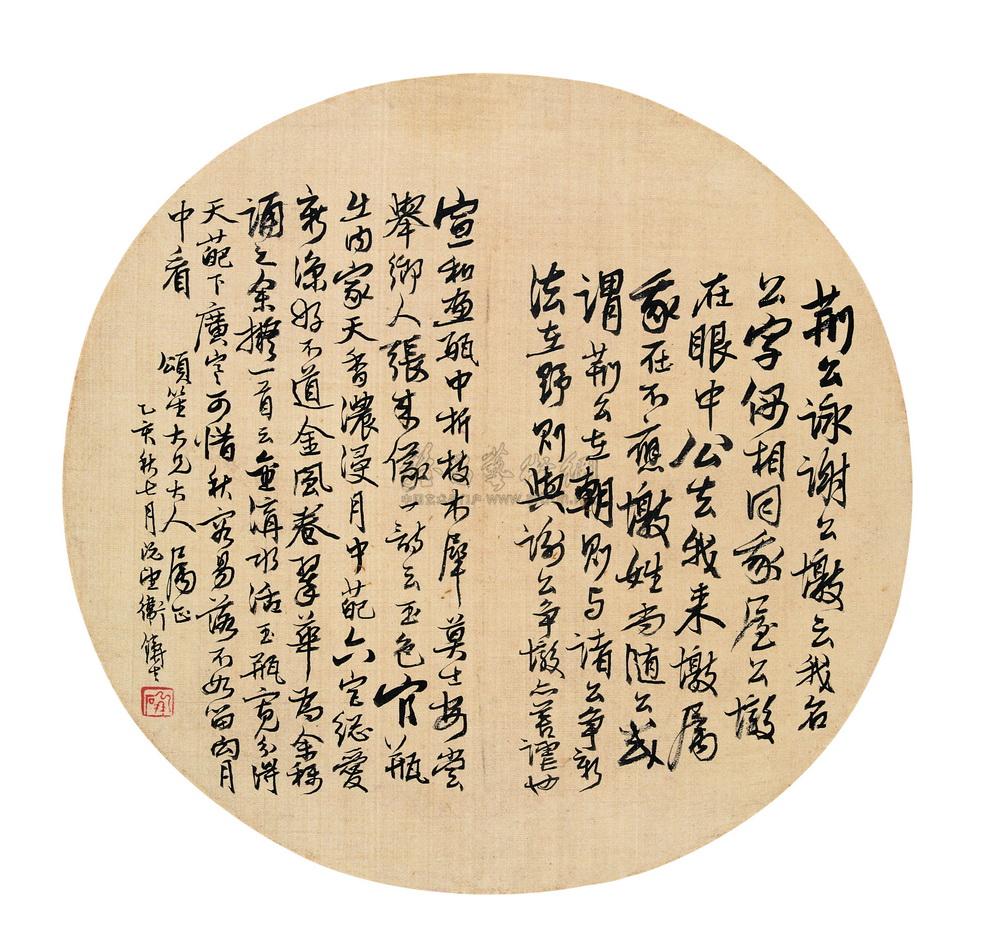 荆公詠謝公墩云我名
公字偶相同我屋公墩
在眼中公去我来墩属
我在不應墩姓尚随公或
謂荆公在朝則与諸公争新
法在野則與謝公争墩亦善謔也
宣和畫瓶中折枝木犀莫士安嘗
舉鄉人張来儀一詩云玉色官瓶
出内家天香濃浸月中葩六宫總愛
新涼好不道金風卷翠華為余稱
誦之余擬一首云金溝水活玉瓶寬分得
天葩下廣寒可惜秋容易落不如留向月
中看
頌笙大兄大人属正
乙亥秋七月衛鑄生